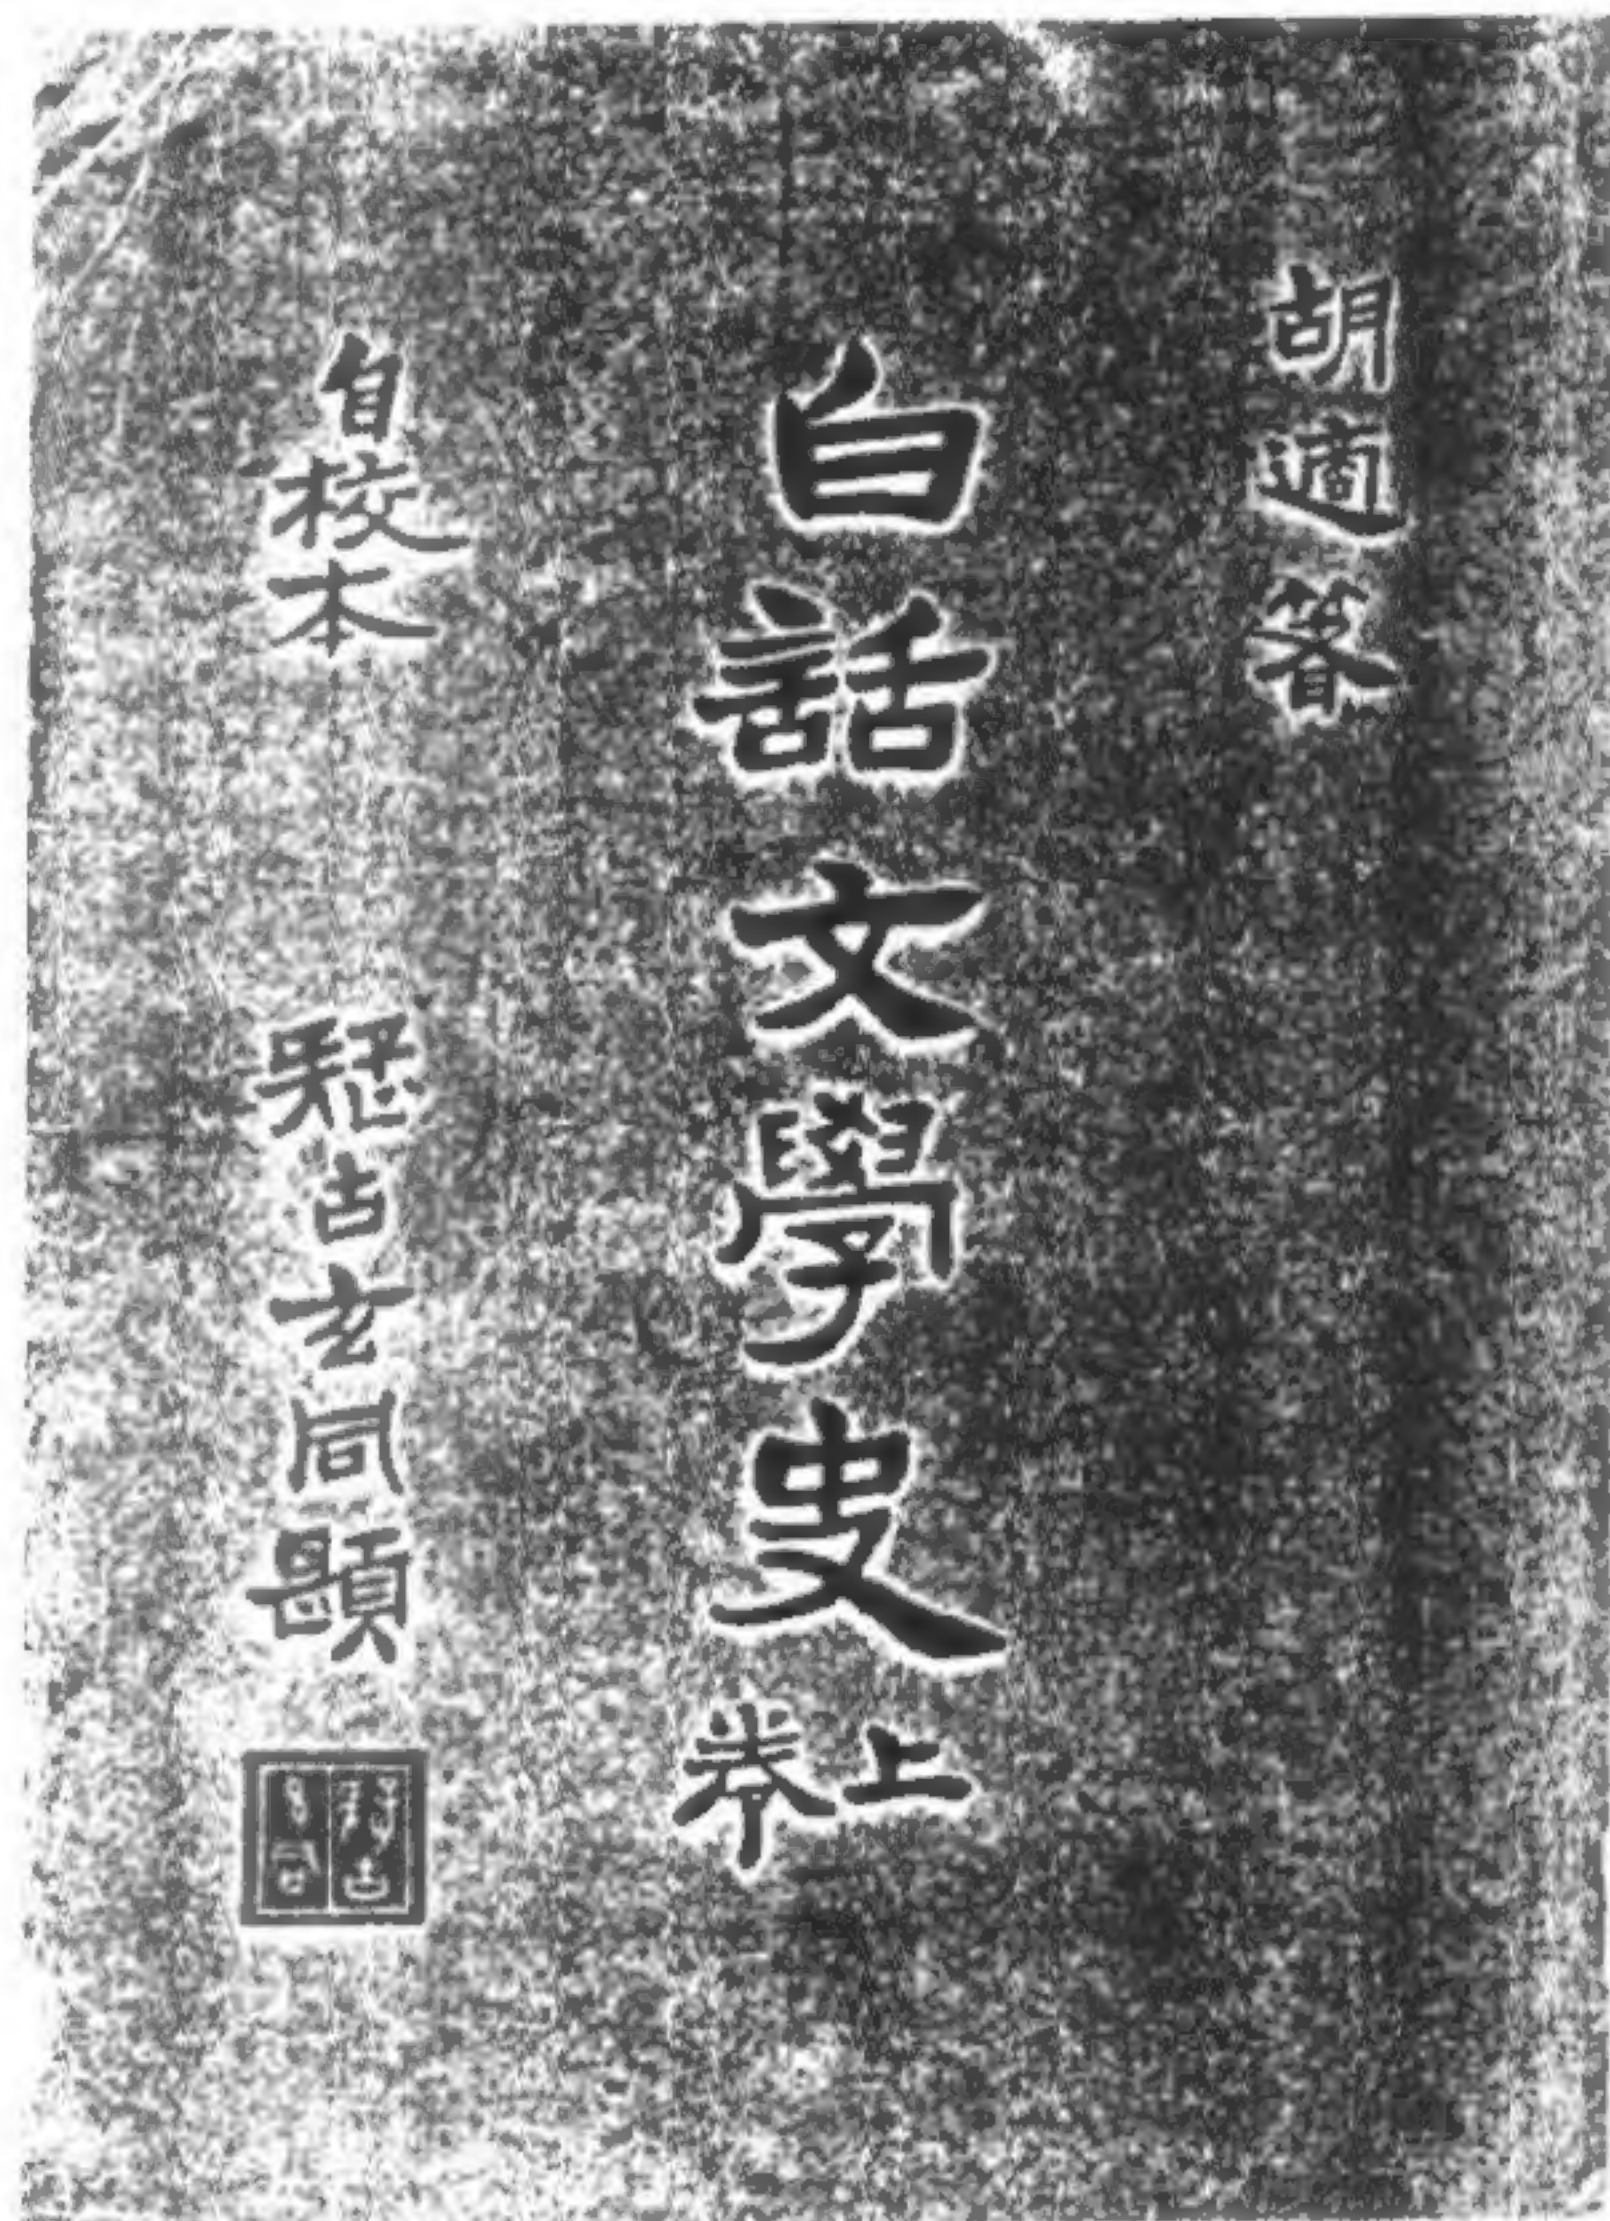 胡適箸
白話文學史 上卷
自校本 疑古玄同題
疑古玄同